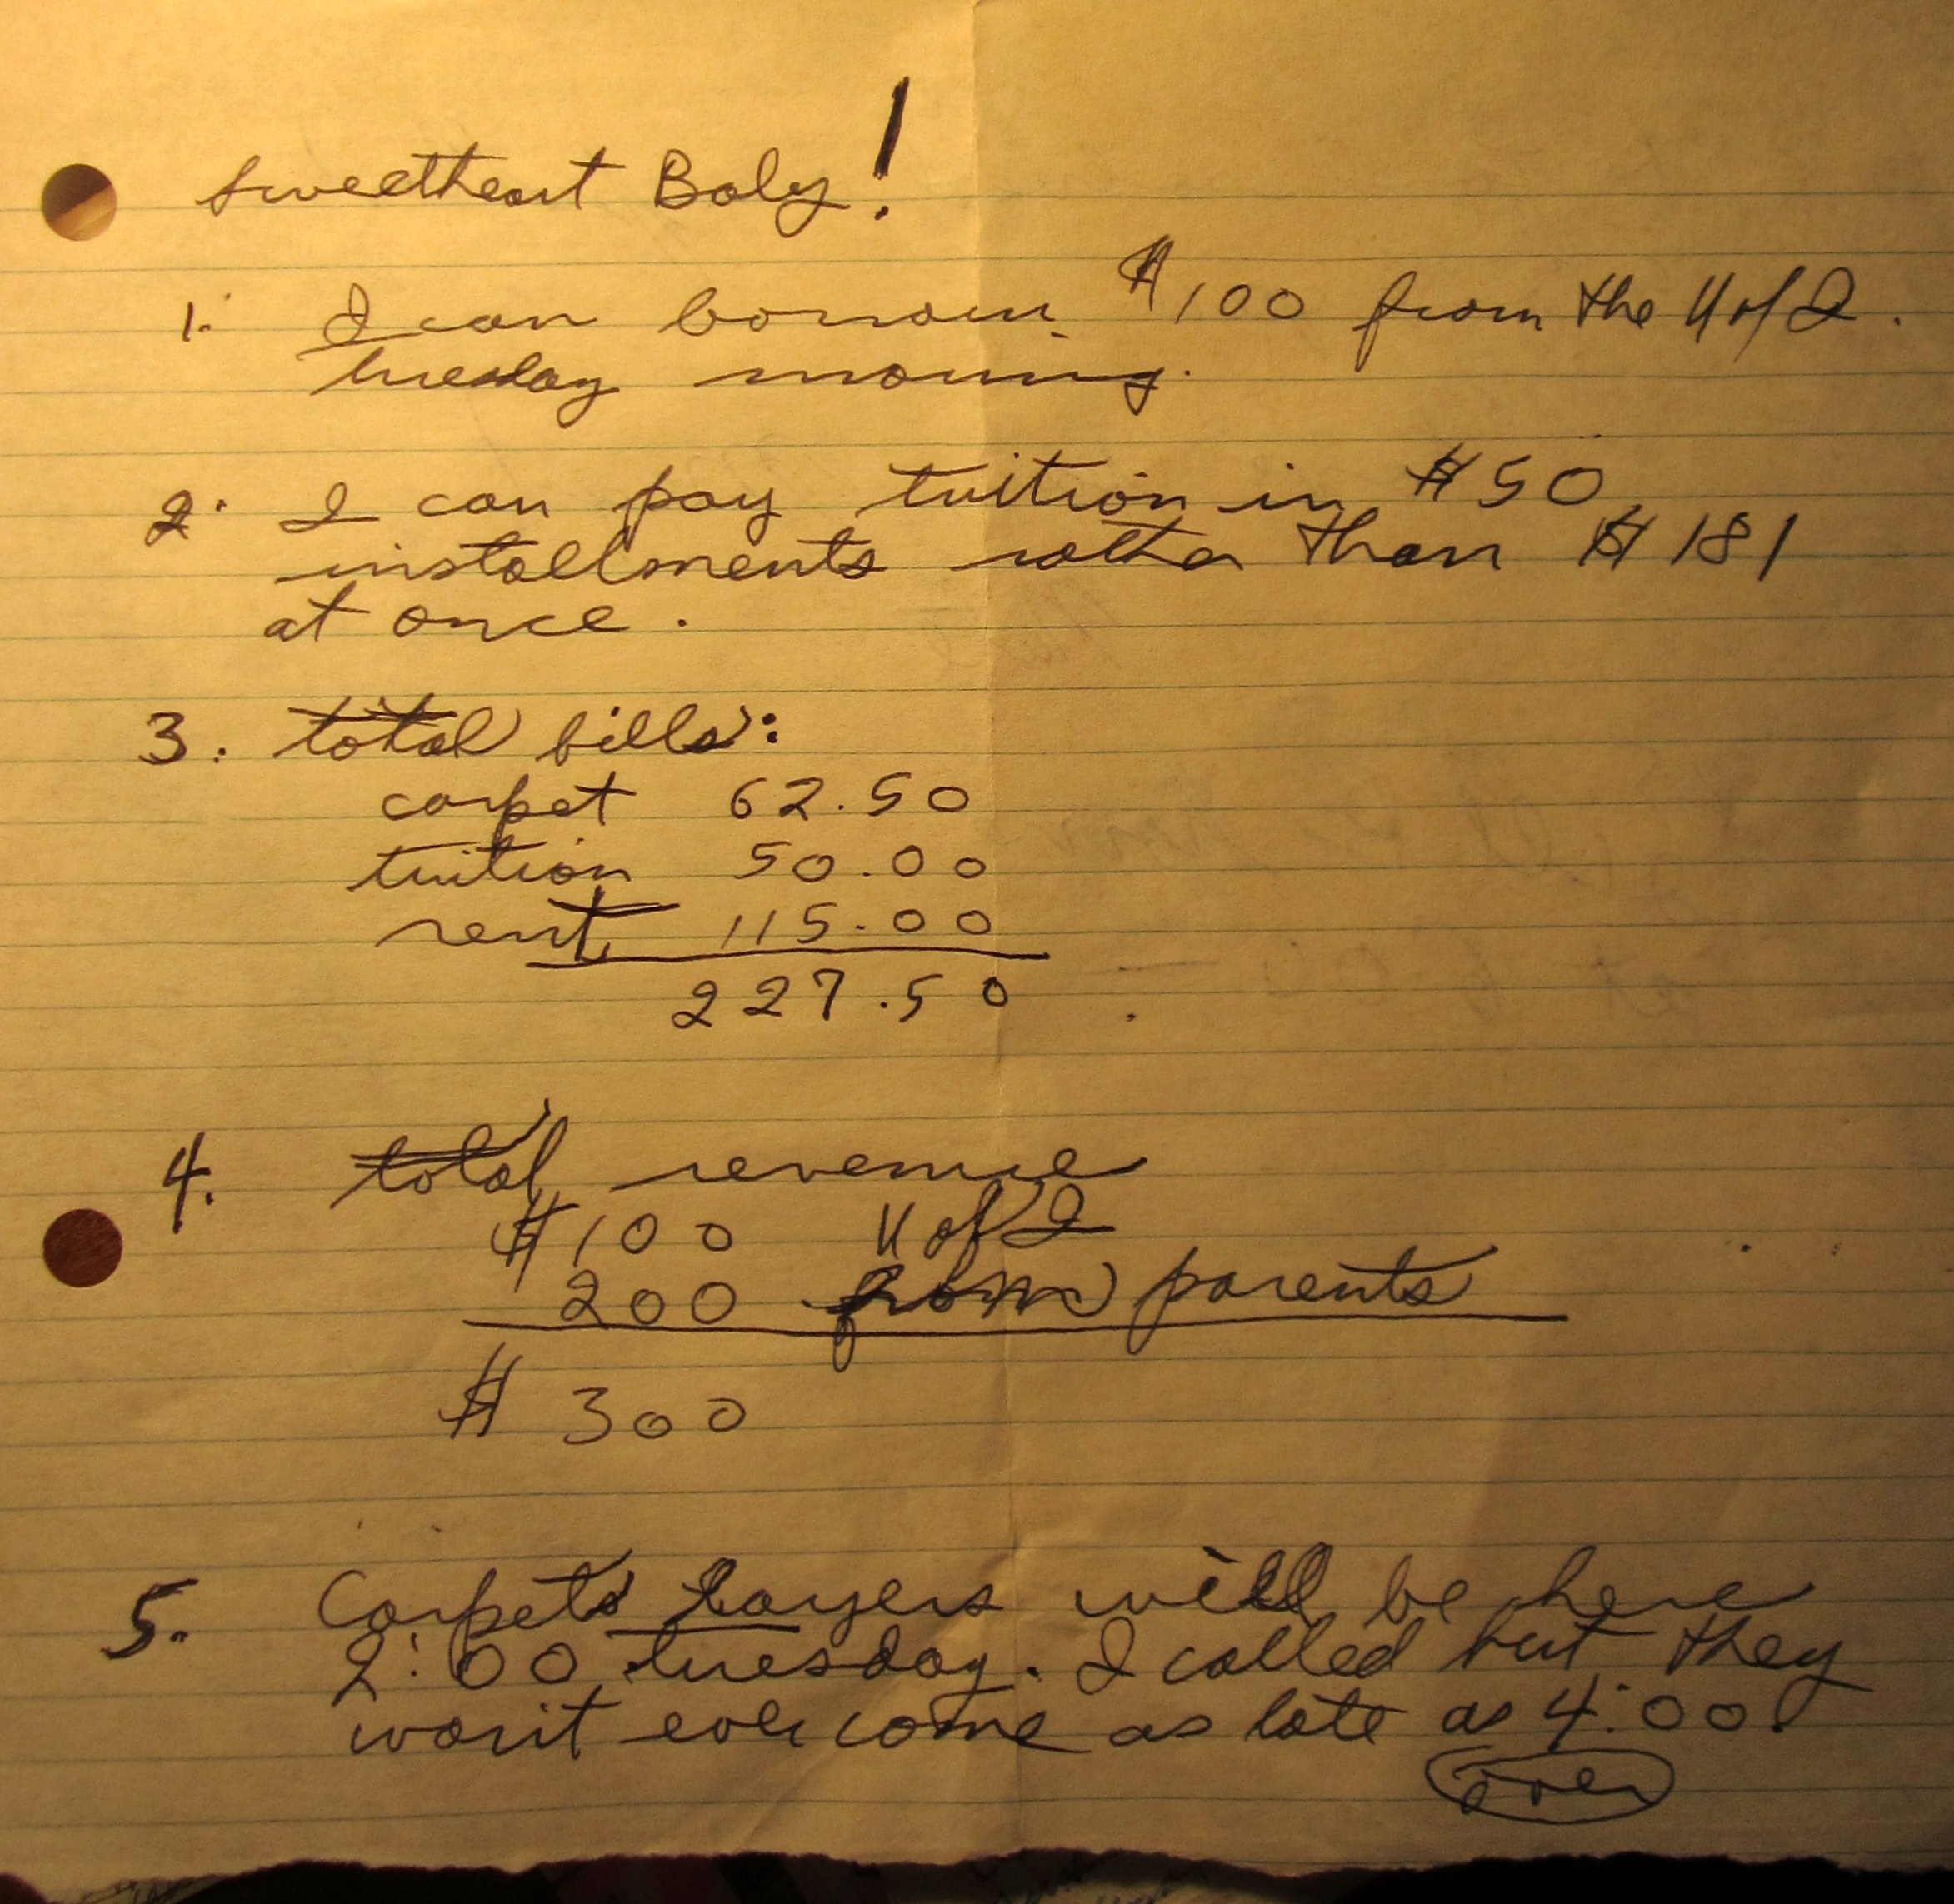 Sweetheart Baby!
1. I can borrow $100 from the U of I.
tuesday morning.
2. I can pay tuition in $50
installments rather than $181
at once.
3. total bills:
carpet 62.50
tuition 50.00
rent 115.00
227.50
4. total revenue
$100 U of I
200 from parents
$300
5. Carpets Layers will be here
2:00 tuesday. I called but they
won't come as late as 4:00.
over